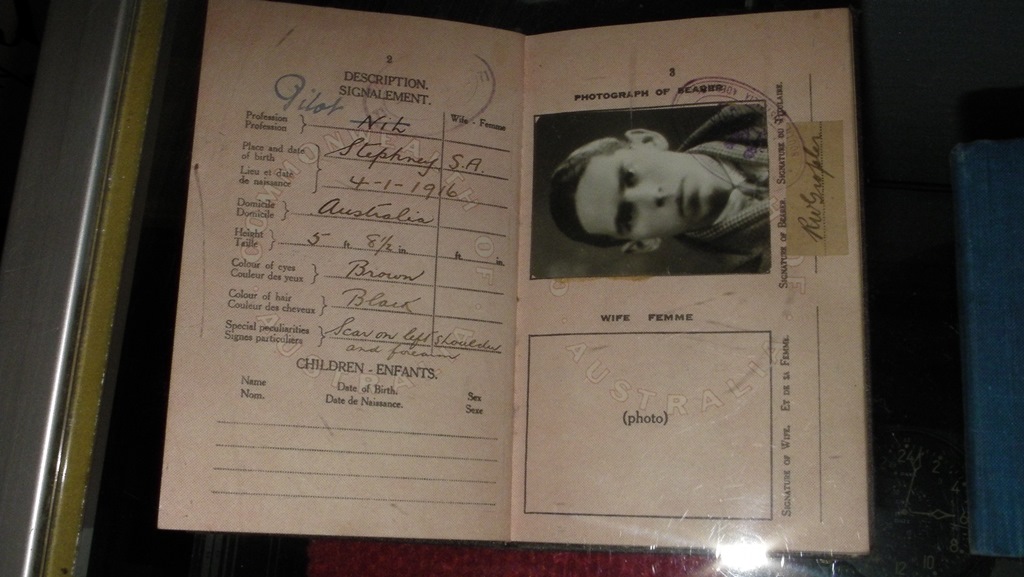 2
DESCRIPTION.
SIGNALEMENT.
Pilot
Profession
Profession
Nil
Wife - Femme
Place and date
of birth
Stephney S.A.
Lieu et date
de naissance
4-1-1916
Domicile
Domicile
Australia
Height
Taille
5 ft 8½ in
ft. in.
Colour of eyes
Couleur des yeux
Brown
Colour of hair
Couleur des cheveux
Black
Special peculiarities
Signes particuliers
Scar on left shoulder
and forearm
CHILDREN - ENFANTS.
Name
Nom.
Date of Birth.
Date de Naissance.
Sex
Sexe
3
PHOTOGRAPH OF BEARER
SIGNATURE OF BEARER SIGNATURE DU TITULAIRE.
WIFE FEMME
(photo)
SIGNATURE OF WIFE. ET DE SA FEMME.
COMMONWEALTH OF AUSTRALIA
AUSTRALIA